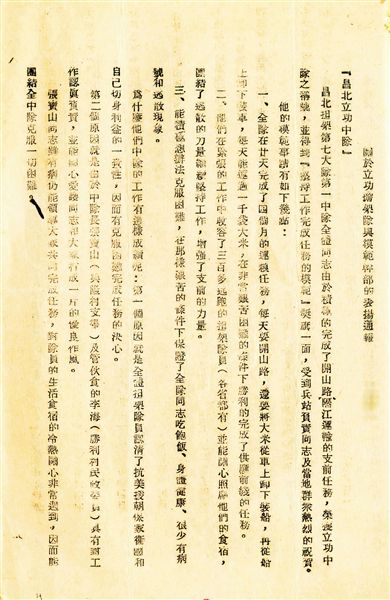 關於立功擔架隊與模範幹部的表揚通報
『昌北立功中隊』
昌北担架第七大隊第一中隊全體同志由於積極的完成了開山路江運輸的支前任務，榮獲立功中
隊之稱號，並得到『堅持工作完成任務的模範』獎旗一面，受到兵站負責同志及當地群衆熱烈的祝賀。
他的模範事蹟有如下幾點：
一、全隊在廿天完成了四個月的運糧任務，每天要開山路，還要將大米從車上卸下裝船，再從船
上卸下裝車，每天能運過一千袋大米，在非常艱苦困難的條件下勝利的完成了供應前綫的任務。
二、他們在緊張的工作中收容了三百多逃跑的担架隊員（各省都有）並能關心照顧他們的食宿，
團結了逃散的力量繼續堅持工作，增强了支前的力量。
三、能積極想辦法克服困難，在那樣艱苦的條件下保證了全隊同志吃飽飯、身體健康、很少有病
號和逃散現象。
爲什麽他們中隊的工作有這樣成績呢：第一個原因就是全體担架隊員認清了抗美援朝保家衛國和
自己切身利益的一致性，因而有克服困難完成任務的決心。
第二個原因就是由於中隊長張寶山（興隆村支書）及管伙食的李海（勝利村民政委員）具有對工
作認眞負責，並能關心愛護同志和大家打成一片的優良作風。
張寶山同志雖有病仍能領導大家共同完成任務，對隊員的生活食宿的冷熱關心非常週到，因而能
團結全中隊克服一切困難。